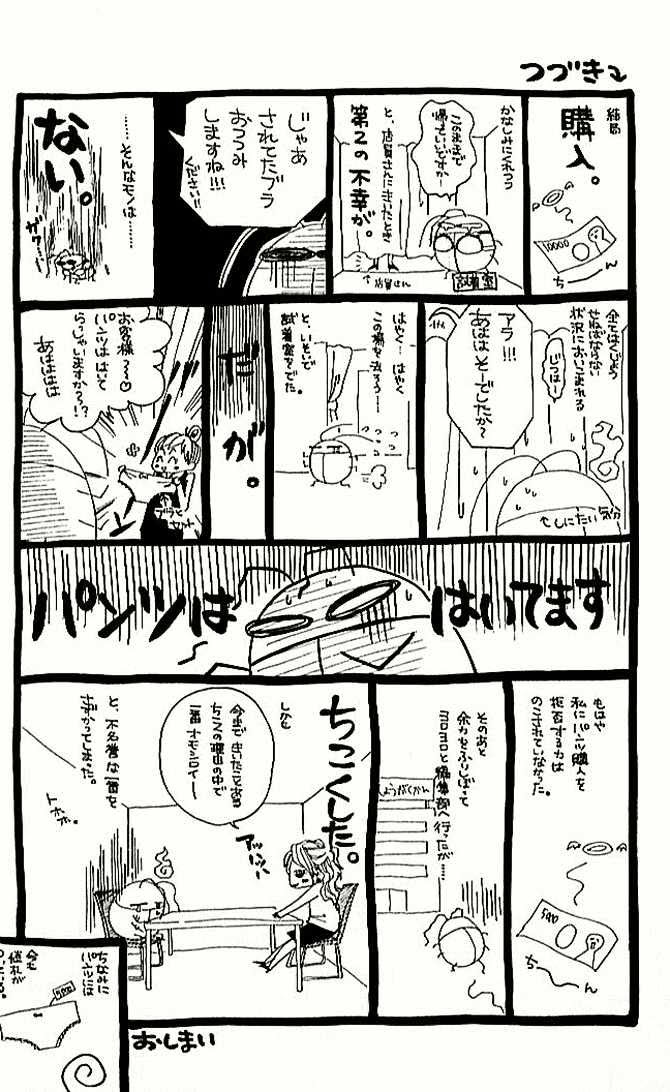 つづき
結局
購入。
10000
ちーん
かなしみにくれつつ
このままで
帰っていいですかー
と、店員さんにきいたとき
第2の不幸が。
↑店員さん
試着室
じゃあ
されてたブラ
おつつみ
しますね!!!
ください!!
……そんなモノは……
ない。
ザァー…
全てはくじょう
せねばならない
状況においこまれる
じつはー
アラ!!!
あははそーでしたか?
←しにたい気分
はやく…はやく
この場を去ろう……
と、いそいで
試着室をでた。
だが。
お客様〜〜♡
パンツははいて
らっしゃいますかっ!?
あはははは
ブラと
セット
パンツは
はいてます
もはや
私にパンツ購入を
拒否する力は
のこされていなかった。
ちーん
そのあと
余力をふりしぼって
ヨロヨロと編集部へ行ったが……
しょうがくかん
ちこくした。
しかも
今まで出いた又ある
ちこの理由の中で
一番オモシロイー
アッハッハッ
と、不名誉な一番を
さずかってしまった。
トホホ。
ちなみに
パンツには
今も
値札が
500
おしまい